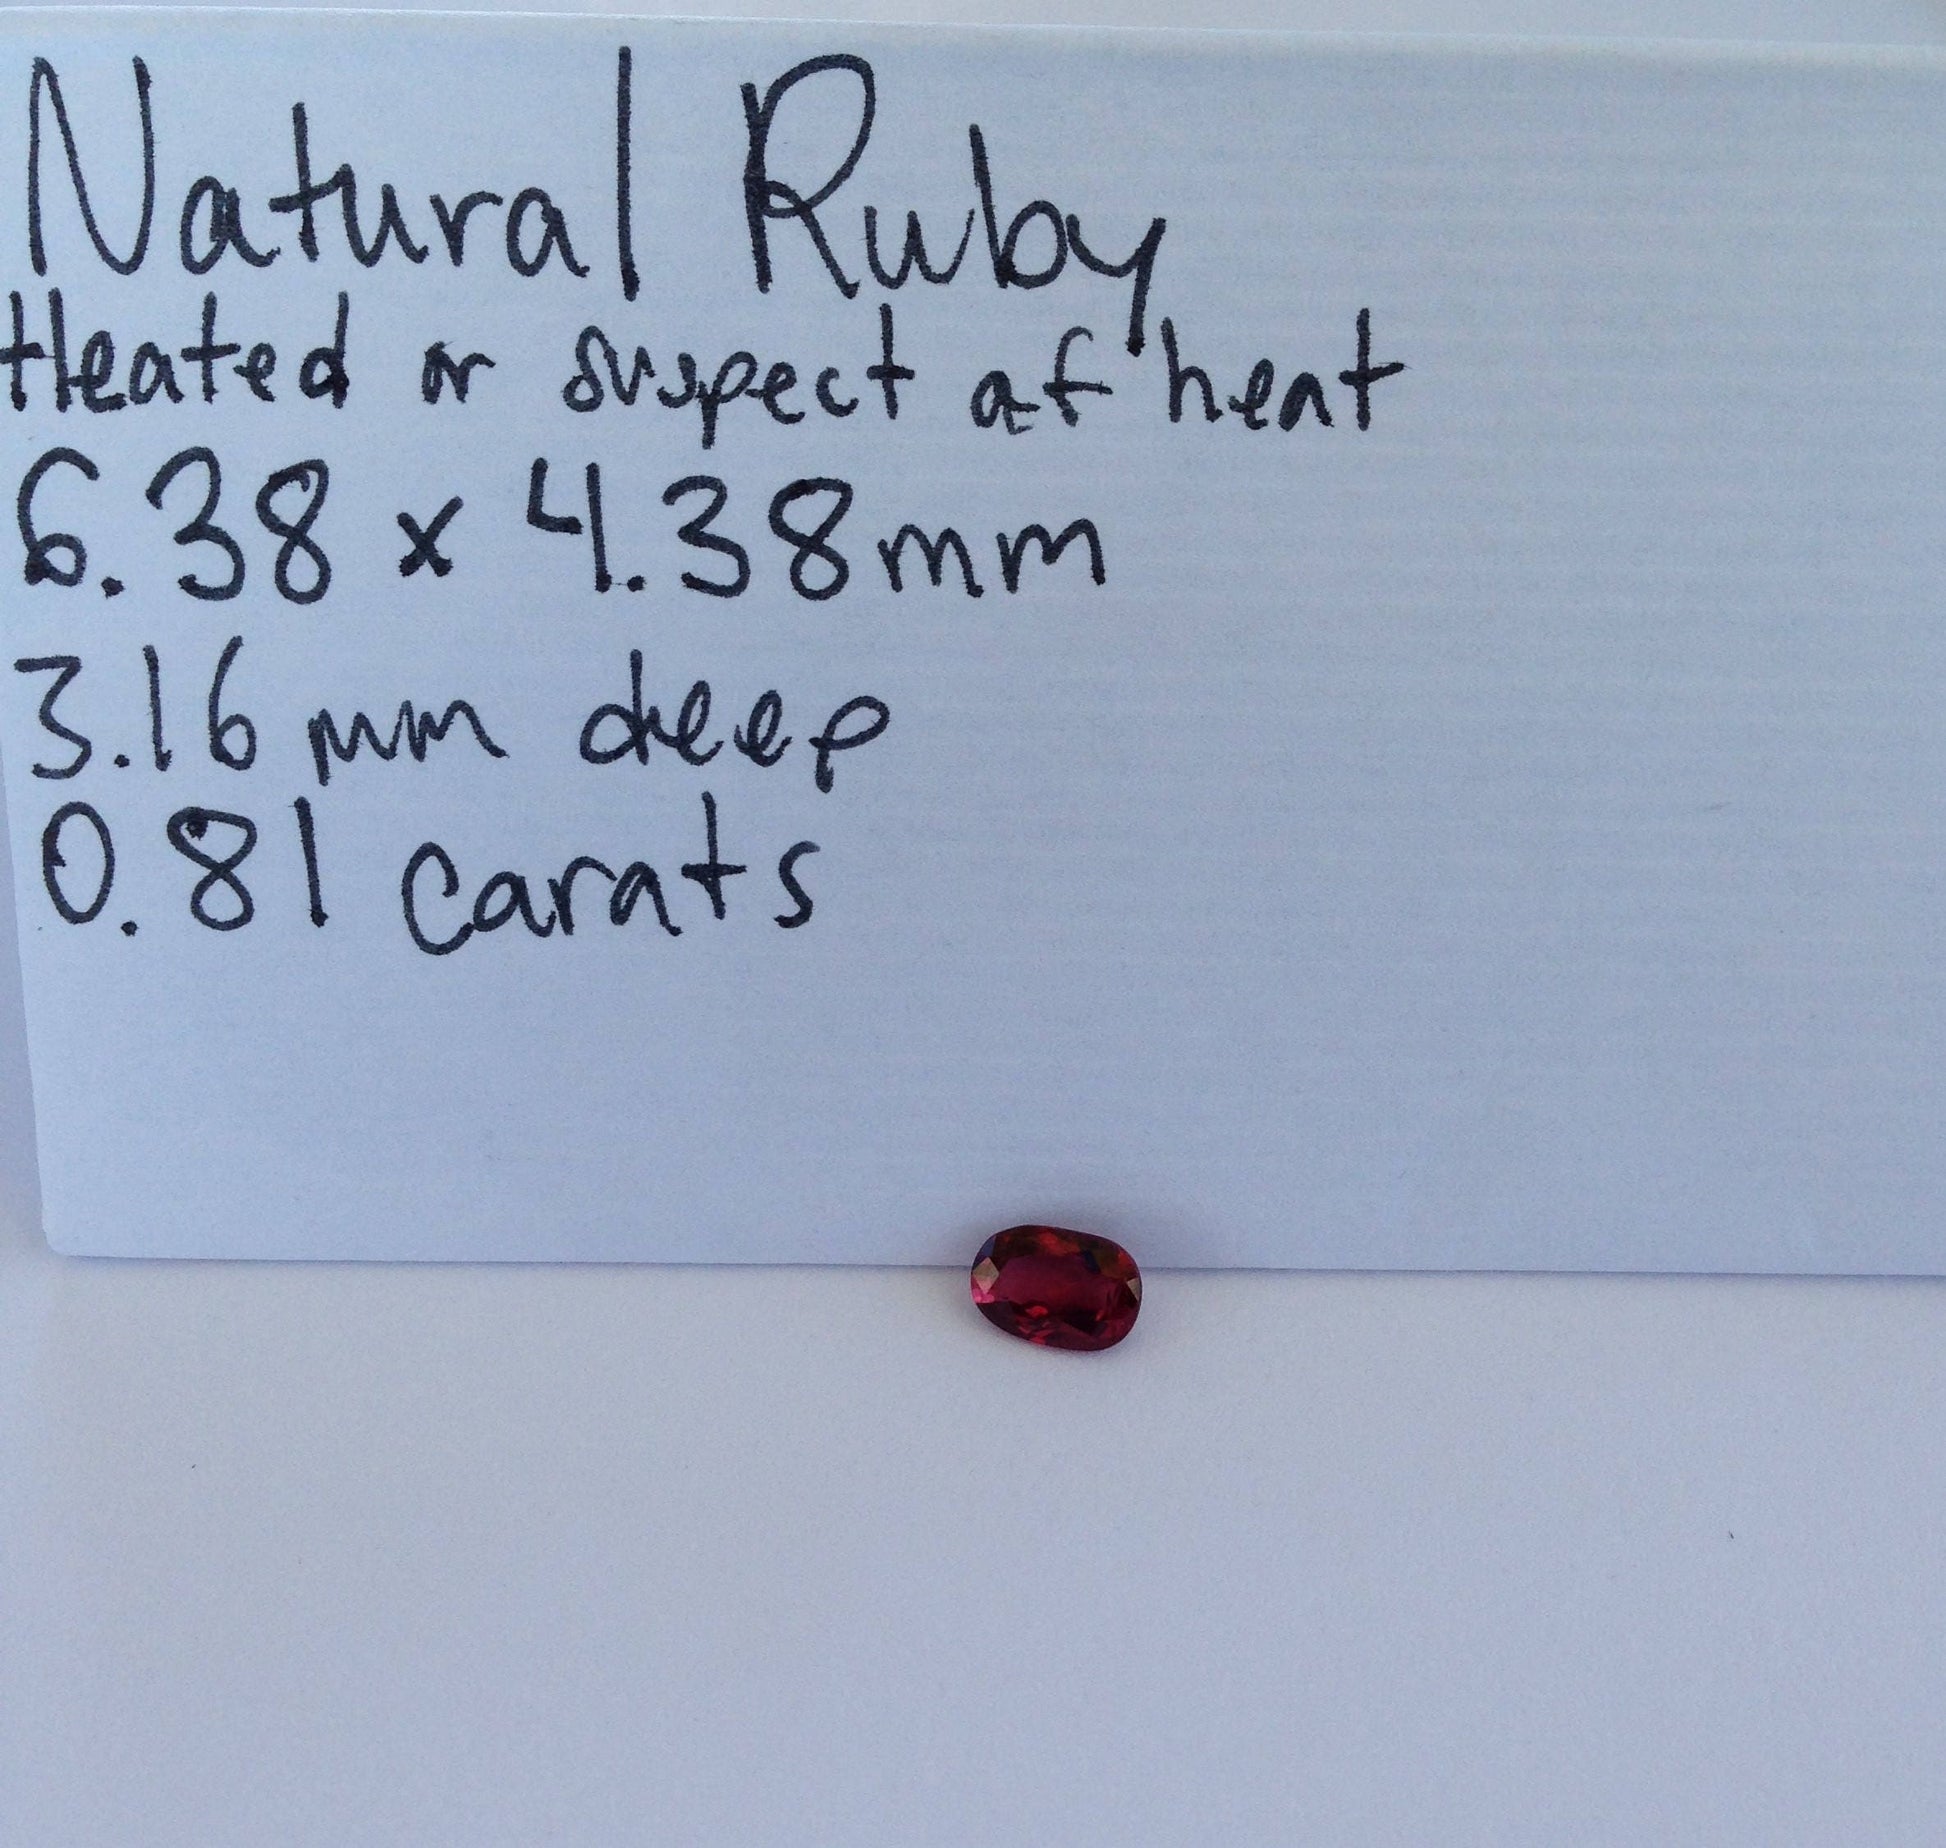 Natural Ruby
Heated or suspect of heat
6.38 x 4.38mm
3.16 mm deep
0.81 carats